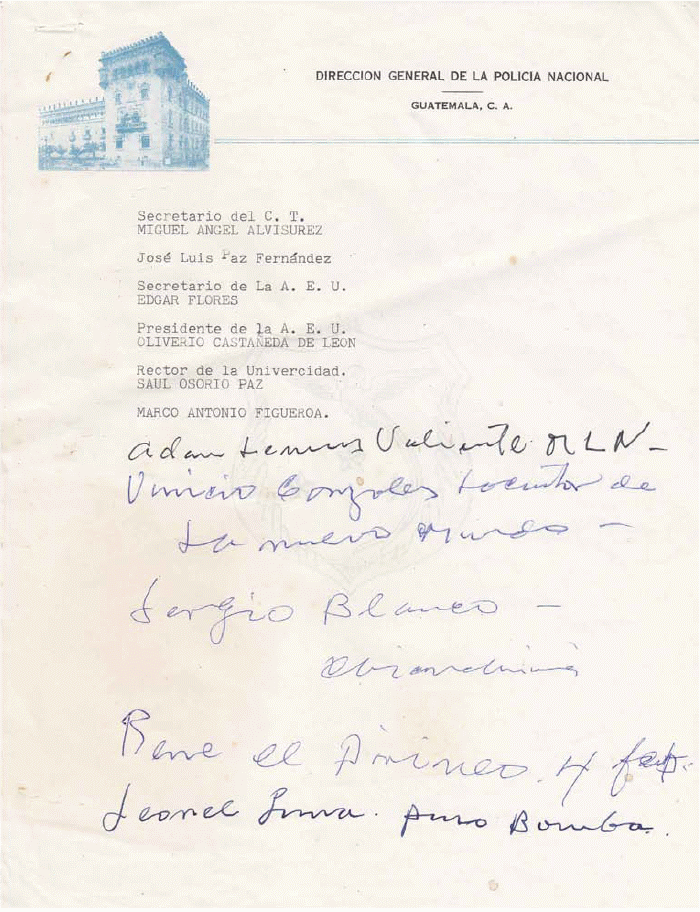 DIRECCION GENERAL DE LA POLICIA NACIONAL
GUATEMALA, C. A.
Secretario del C. T.
MIGUEL ANGEL ALVISUREZ
José Luis Paz Fernández
Secretario de La A. E. U.
EDGAR FLORES
Presidente de la A. E. U.
OLIVERIO CASTAÑEDA DE LEON
Rector de la Univercidad.
SAUL OSORIO PAZ
MARCO ANTONIO FIGUEROA.
Adan Lemus Valiente MLN-
Vinicio Gonzales Locutor de
La nuevo Mundo -
Sergio Blanco -
Rene el
Leonel Puro Bomba.